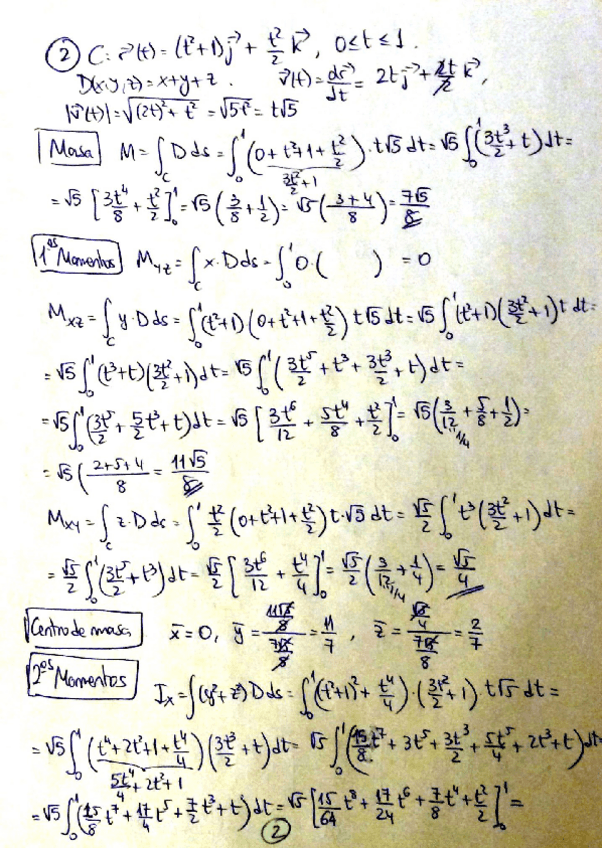 ② C: r⃗(t) = (t²+1)j⃗ + t²/2 k⃗, 0≤t≤1.
D(x,y,z) = x+y+z. v⃗(t) = dr⃗/dt = 2t j⃗ + 2t/2 k⃗,
|v⃗(t)| = √((2t)²+t²) = √(5t²) = t√5
Masa M = ∫_C D ds = ∫₀¹ (0+t²+1+t²/2)·t√5 dt = √5 ∫₀¹ (3t³/2 + t) dt =
3t²/2 + 1
= √5 [3t⁴/8 + t²/2]₀¹ = √5 (3/8 + 1/2) = √5 ((3+4)/8) = 7√5/8
1ᵒˢ Momentos M_yz = ∫_C x·D ds = ∫₀¹ 0·( ) = 0
M_xz = ∫_C y·D ds = ∫₀¹ (t²+1)(0+t²+1+t²/2) t√5 dt = √5 ∫₀¹ (t²+1)(3t²/2 + 1) t dt =
= √5 ∫₀¹ (t³+t)(3t²/2 + 1) dt = √5 ∫₀¹ (3t⁵/2 + t³ + 3t³/2 + t) dt =
= √5 ∫₀¹ (3t⁵/2 + 5/2 t³ + t) dt = √5 [3t⁶/12 + 5t⁴/8 + t²/2]₀¹ = √5 (3/12 + 5/8 + 1/2) =
1/4
= √5 ((2+5+4)/8 = 11√5/8
M_xy = ∫_C z·D ds = ∫₀¹ t²/2 (0+t²+1+t²/2) t·√5 dt = √5/2 ∫₀¹ t³ (3t²/2 + 1) dt =
= √5/2 ∫₀¹ (3t⁵/2 + t³) dt = √5/2 [3t⁶/12 + t⁴/4]₀¹ = √5/2 (3/12 + 1/4) = √5/4
1/4
Centro de masa x̄ = 0, ȳ = (11√5/8)/(7√5/8) = 11/7, z̄ = (√5/4)/(7√5/8) = 2/7
2ᵒˢ Momentos I_x = ∫(y²+z²) D ds = ∫₀¹ ((t²+1)² + t⁴/4)·(3t²/2 + 1)·t√5 dt =
= √5 ∫₀¹ (t⁴+2t²+1+t⁴/4)(3t³/2 + t) dt = √5 ∫₀¹ (15/8 t⁷ + 3t⁵ + 3t³/2 + 5t⁵/4 + 2t³ + t) dt
5t⁴/4 + 2t² + 1
= √5 ∫₀¹ (15/8 t⁷ + 17/4 t⁵ + 7/2 t³ + t) dt = √5 [15/64 t⁸ + 17/24 t⁶ + 7/8 t⁴ + t²/2]₀¹ =
②